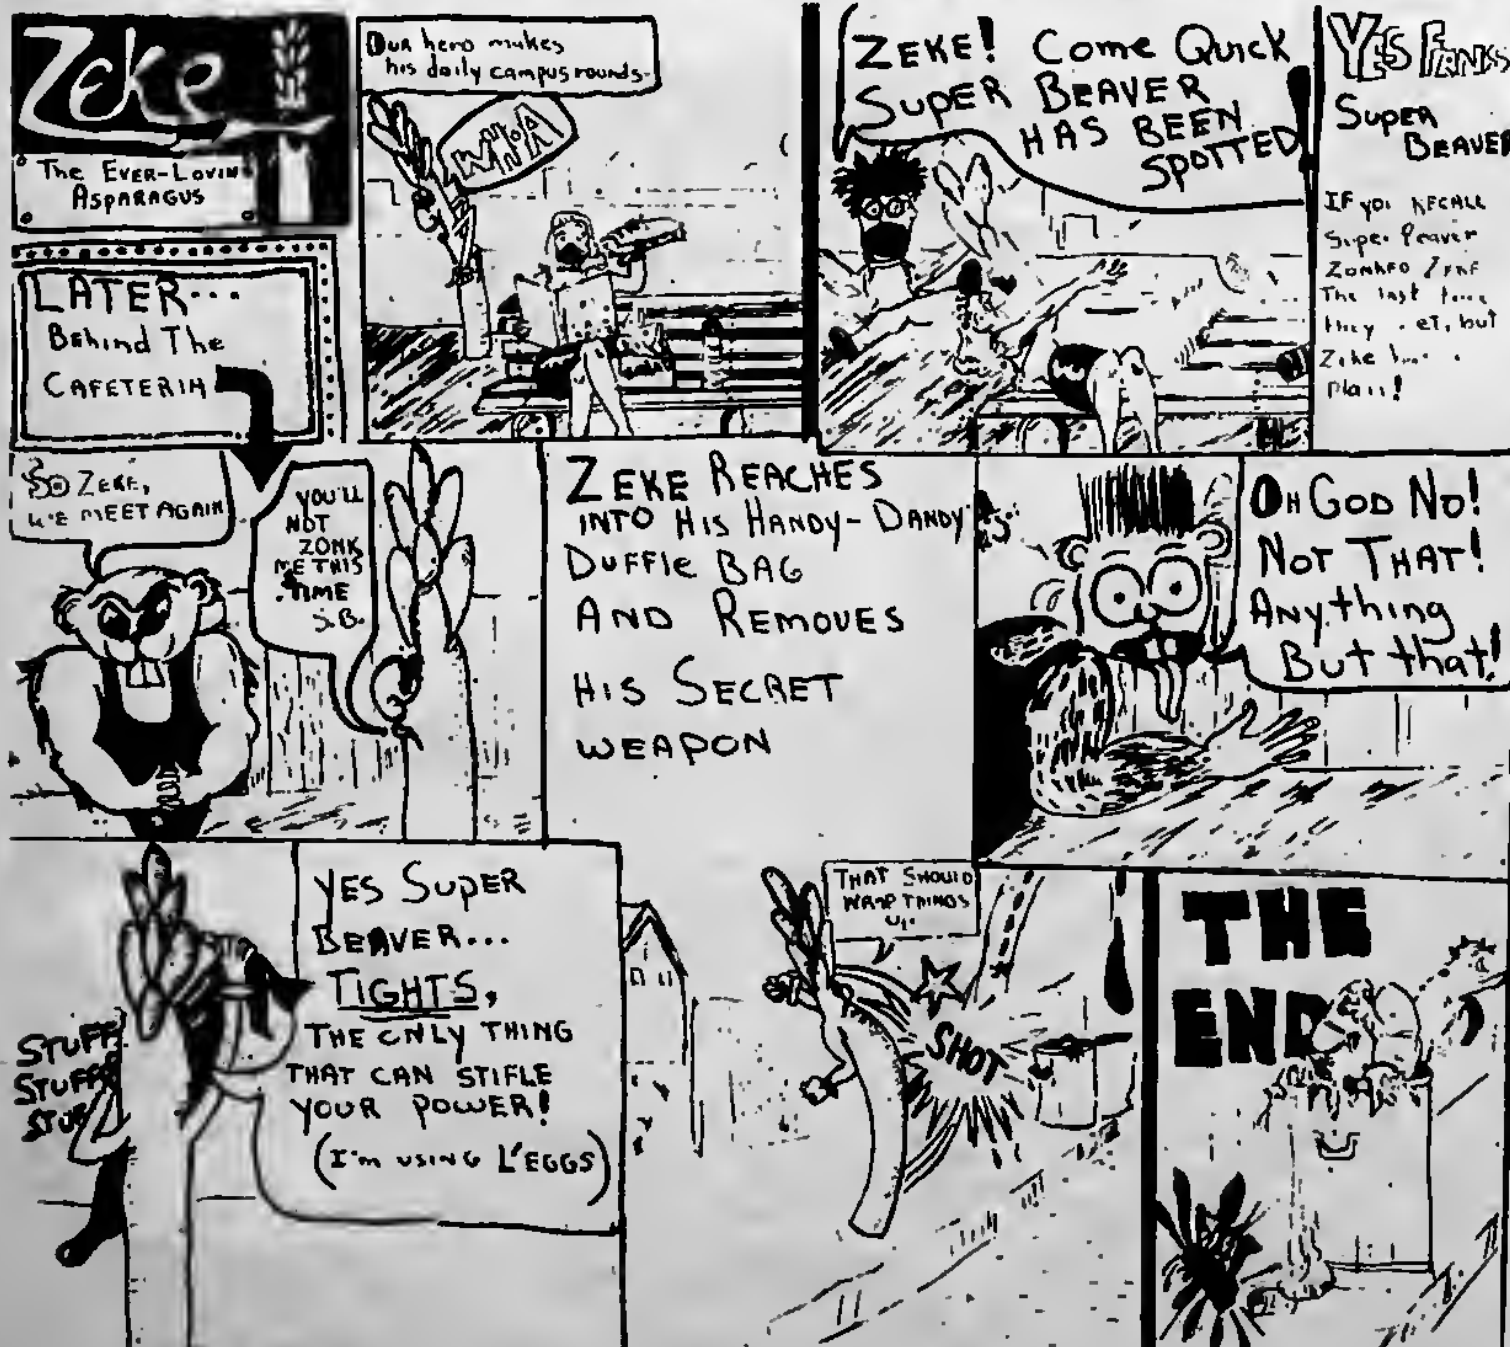 Zeke
The Ever-Lovin
Asparagus
Our hero makes
his daily campus rounds-
WHOA
ZEKE! Come Quick
SUPER BEAVER
HAS BEEN
SPOTTED!
YES FANS
SUPER
BEAVER
IF you RECALL
Super Beaver
ZONKED ZEKE
The last time
they but
Zeke
plan!
LATER...
Behind The
CAFETERIA
SO ZEKE,
WE MEET AGAIN
YOU'LL
NOT
ZONK
ME THIS
TIME
S.B.
ZEKE REACHES
INTO HIS HANDY-DANDY
DUFFIE BAG
AND REMOVES
HIS SECRET
WEAPON
OH GOD NO!
NOT THAT!
Anything
But that!
STUFF
STUFF
STUF
YES SUPER
BEAVER...
TIGHTS,
THE ONLY THING
THAT CAN STIFLE
YOUR POWER!
(I'm USING L'EGGS)
THAT SHOULD
WRAP THINGS
UP.
SHOT
THE
END